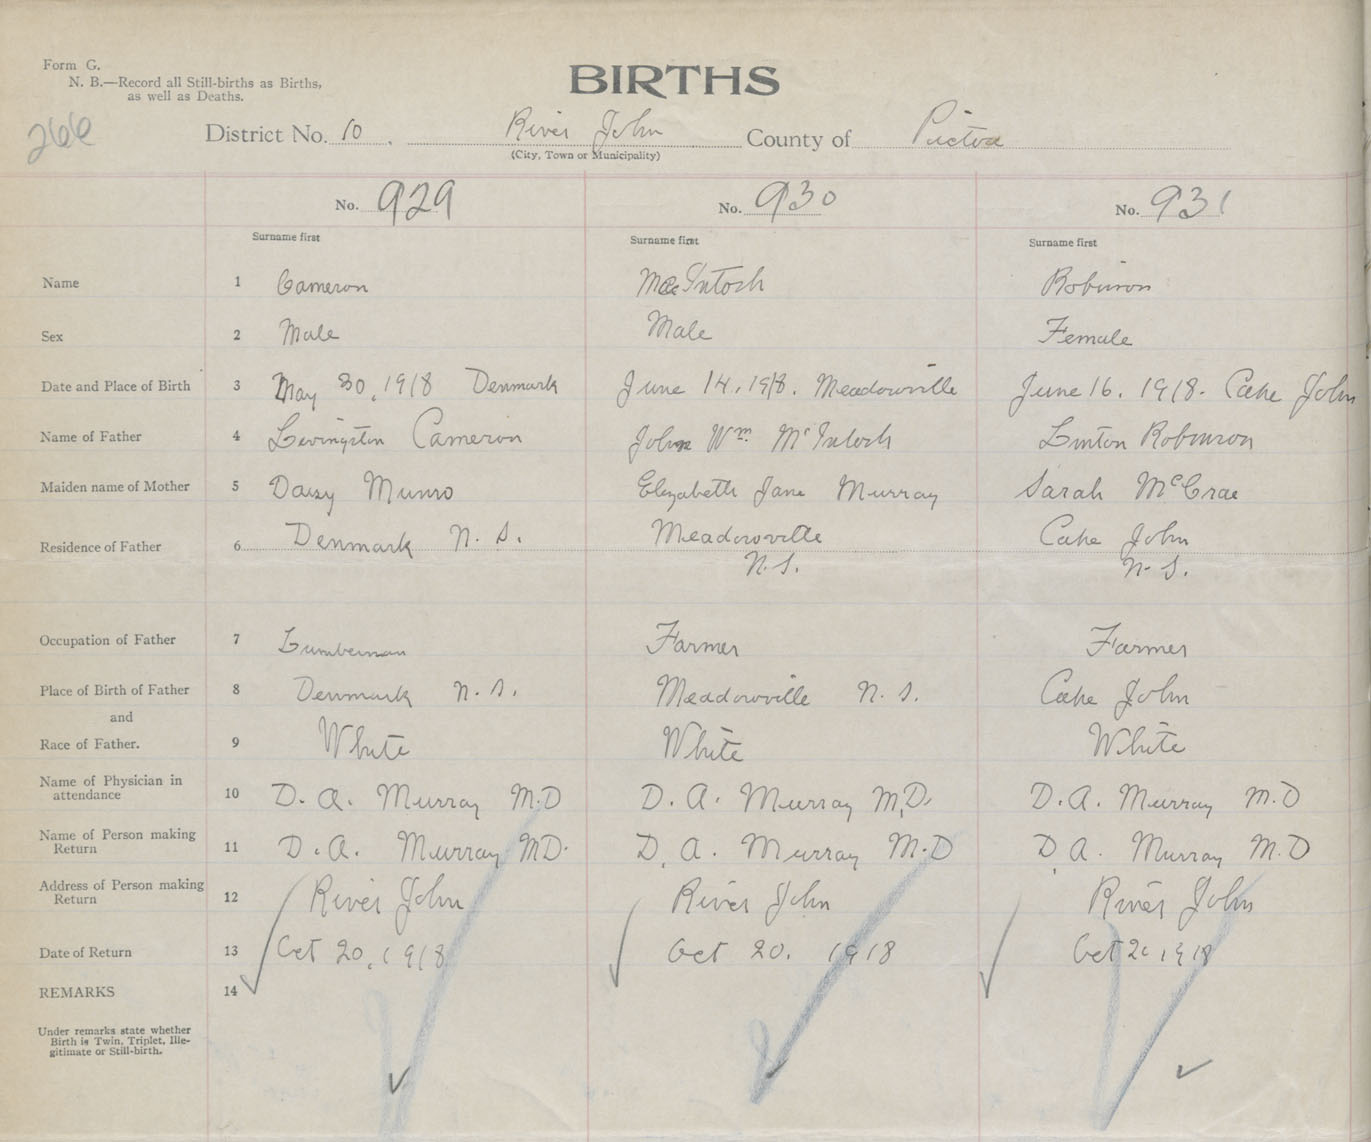 Form G.
N. B.—Record all Still-births as Births,
as well as Deaths.
BIRTHS
266
District No. 10. River John County of Pictou
(City, Town or Municipality)
No. 929 No. 930 No. 931
Surname first Surname first Surname first
Name 1 Cameron MacIntosh Robinson
Sex 2 Male Male Female
Date and Place of Birth 3 May 30, 1918 Denmark June 14, 1918. Meadowville June 16. 1918. Cape John
Name of Father 4 Levingston Cameron John Wm McIntosh Linton Robinson
Maiden name of Mother 5 Daisy Munro Elizabeth Jane Murray Sarah McCrae
Residence of Father 6 Denmark N. S. Meadowville Cape John
N.S. N. S.
Occupation of Father 7 Lumberman Farmer Farmer
Place of Birth of Father 8 Denmark N. S. Meadowville N. S. Cape John
and
Race of Father. 9 White White White
Name of Physician in
attendance 10 D. A. Murray M.D D. A. Murray M.D. D. A. Murray M.D
Name of Person making
Return 11 D. A. Murray M.D. D. A. Murray M.D D. A. Murray M.D
Address of Person making
Return 12 River John River John River John
Date of Return 13 Oct 20, 1918 Oct 20. 1918 Oct 20 1918
REMARKS 14
Under remarks state whether
Birth is Twin, Triplet, Ille-
gitimate or Still-birth.